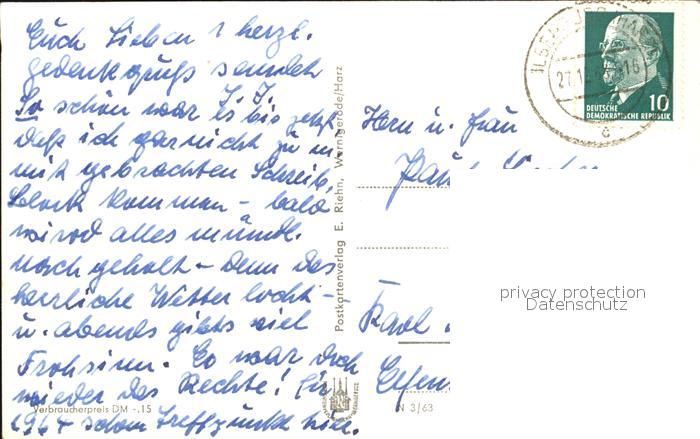 Euch Lieben 2 herzl.
gedenkgruß senden
So schön war Es bis jetzt
daß ich garnicht zu m
mit gebrachten Schreib,
block kommen - bald
wird alles mündl.
nach geholt - Denn das
herrliche Wetter lockt -
u. abends gibts viel
Frohsinn. Es war doch
wieder das Rechte! Für
1964 schon Treffpunkt hier.
Verbraucherpreis DM -.15
Postkartenverlag E. Riehn, Wernigerode/Harz
ILSENBURG
27.12
16
c
DEUTSCHE
DEMOKRATISCHE REPUBLIK
10
Herrn u. Frau
Paul
Karl
N 3/63
privacy protection
Datenschutz